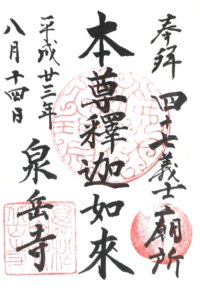 奉拝 四十七義士廟所
本尊釋迦如來
平成廿三年
八月十四日
泉岳寺